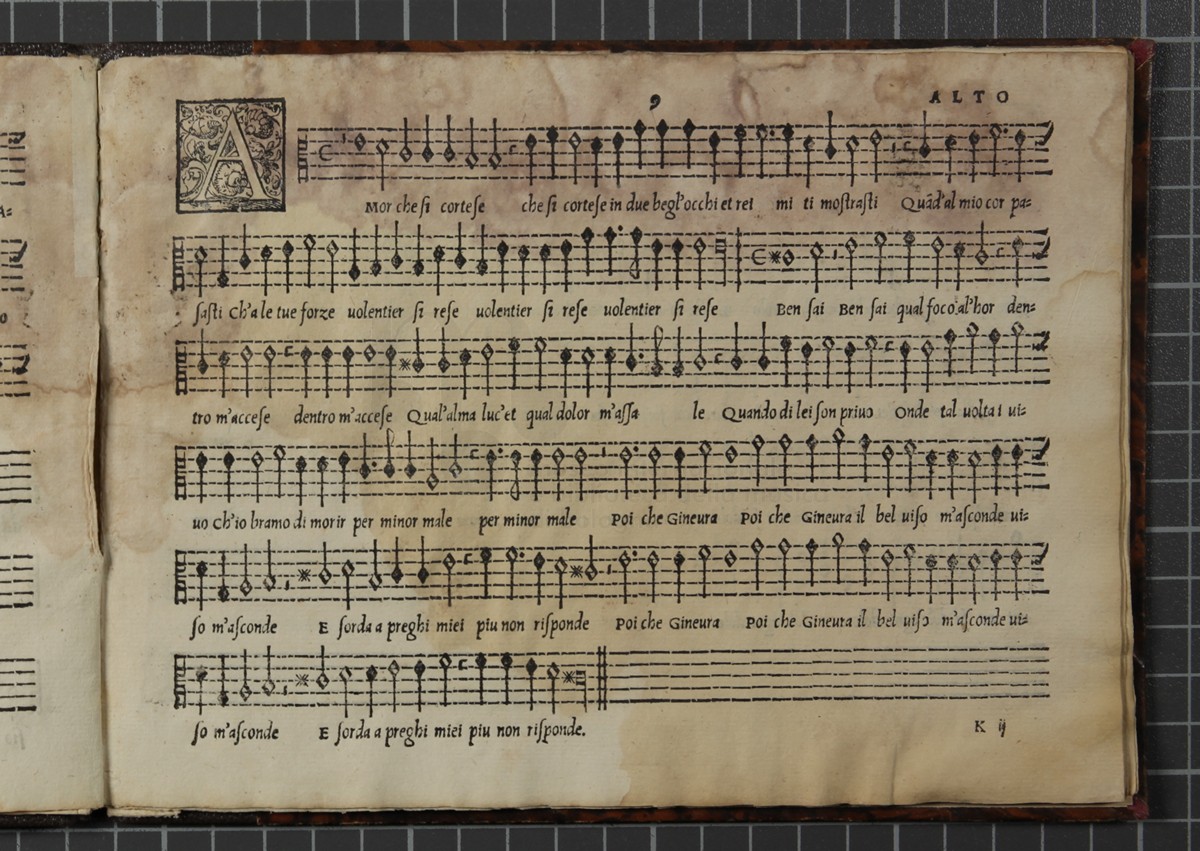 9
ALTO
AMor che si cortese che si cortese in due begl'occhi et rei mi ti mostrasti Quãd'al mio cor pa=
sasti Ch'a le tue forze uolentier si rese uolentier si rese uolentier si rese Ben sai Ben sai qual foco al'hor den=
tro m'accese dentro m'accese Qual'alma luc'et qual dolor m'assa le Quando di lei son priuo Onde tal uolta i ui=
uo Ch'io bramo di morir per minor male per minor male Poi che Gineura Poi che Gineura il bel uiso m'asconde ui=
so m'asconde E sorda a preghi miei piu non risponde Poi che Gineura Poi che Gineura il bel uiso m'asconde ui=
so m'asconde E sorda a preghi miei piu non risponde.
K ij
A=
o